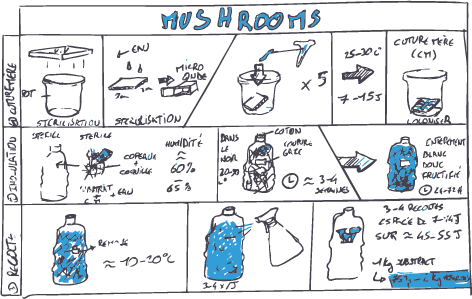 MUSHROOMS
CULTURE MERE
POT
STERILISATION
EAU
MICRO
ONDE
STERILISATION
x 5
25-30°C
7-15J
CULTURE MERE
(CM)
COLONISER
INOCULATION
STERILE
STERILE
COPEAUX
+
COQUILLE
+ EAU
HUMIDITÉ
≈
60%
à
65%
DANS
LE
NOIR
COTON
GAZE
≈ 3-4
SEMAINES
ENTIEREMENT
BLANC
DONC
FRUCTIFIE
RECOLTE
≈ 10-20°C
3-4x/J
3-4 RECOLTES
ESPACÉE DE 7-14J
SUR ≈ 45-55J
1 Kg SUBSTRAT